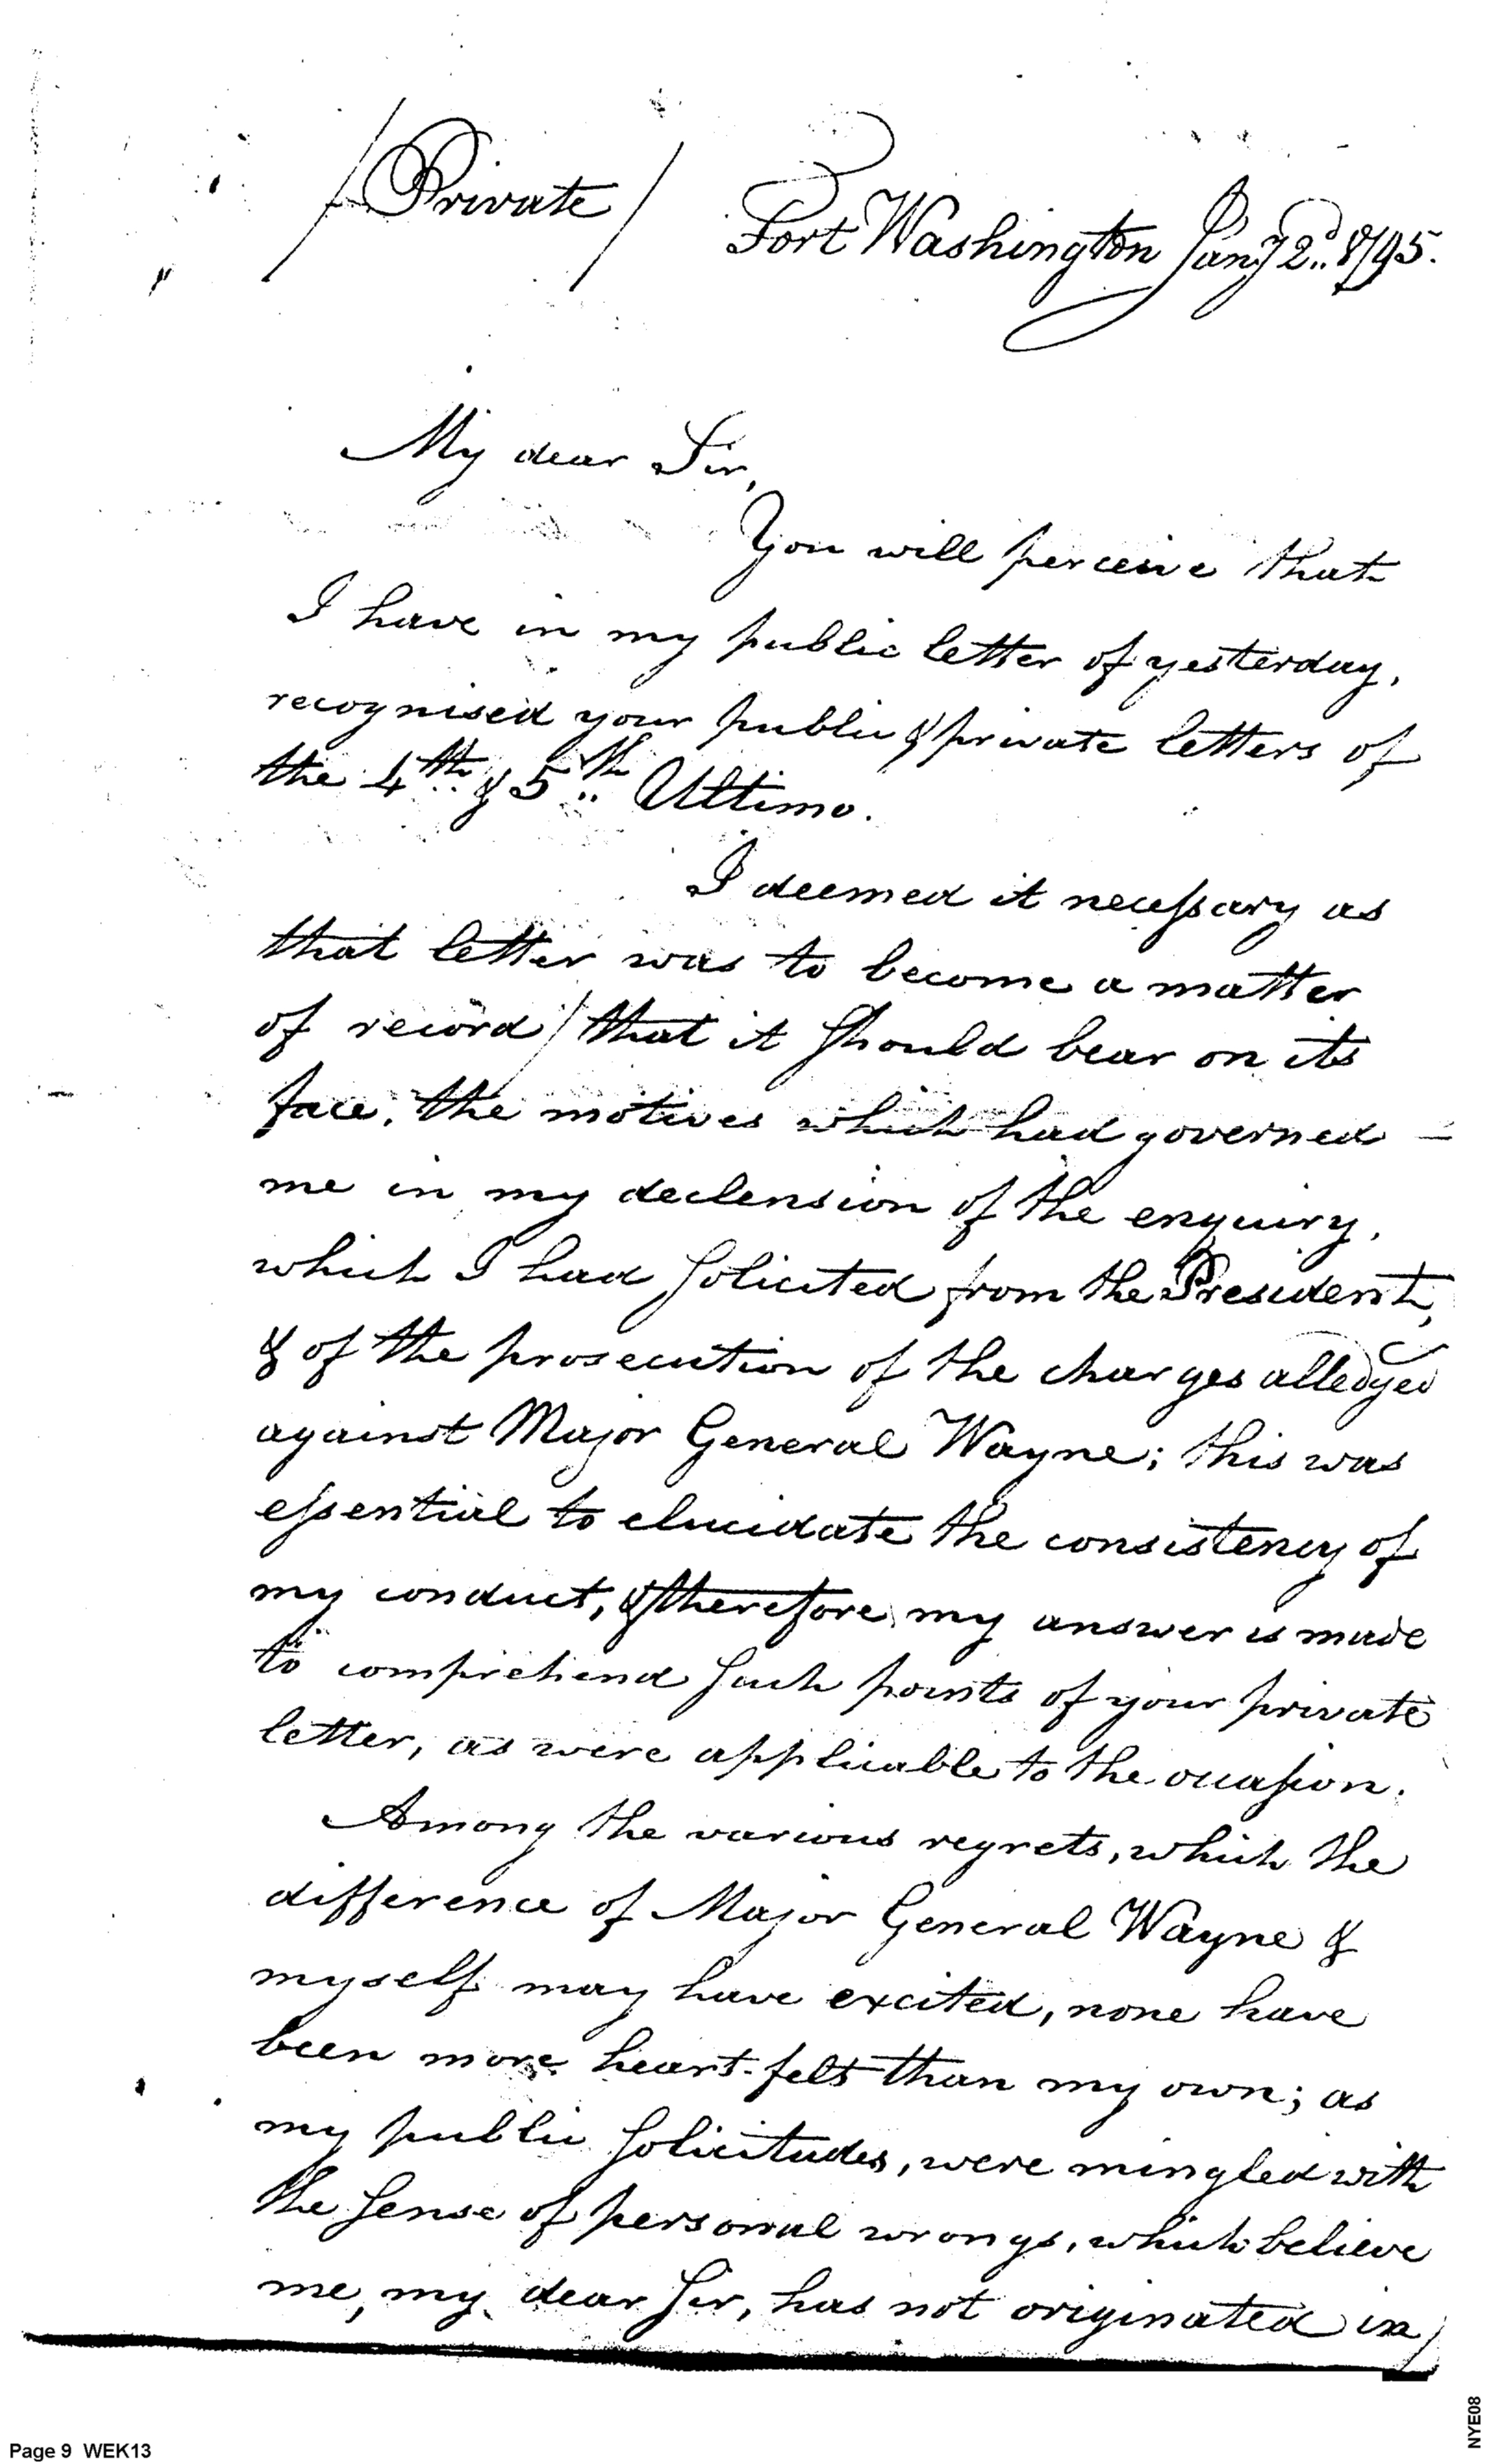 /Private/
Fort Washington Jany 2d. 1795.
My dear Sir,
You will perceive that
I have in my public letter of yesterday,
recognised your public & private letters of
the 4th. & 5th. Ultimo.
I deemed it necessary as
that letter was to become a matter
of record / that it should bear on its
face, the motives which had governed
me in my declension of the enquiry,
which I had solicited from the President,
& of the prosecution of the charges alledged
against Major General Wayne; this was
essential to elucidate the consistency of
my conduct, & therefore my answer is made
to comprehend such points of your private
letter, as were applicable to the occasion.
Among the various regrets, which the
difference of Major General Wayne &
myself may have excited, none have
been more heart-felt than my own; as
my public solicitudes, were mingled with
the sense of personal wrongs, which believe
me, my dear Sir, has not originated in/
Page 9 WEK13
NYE08